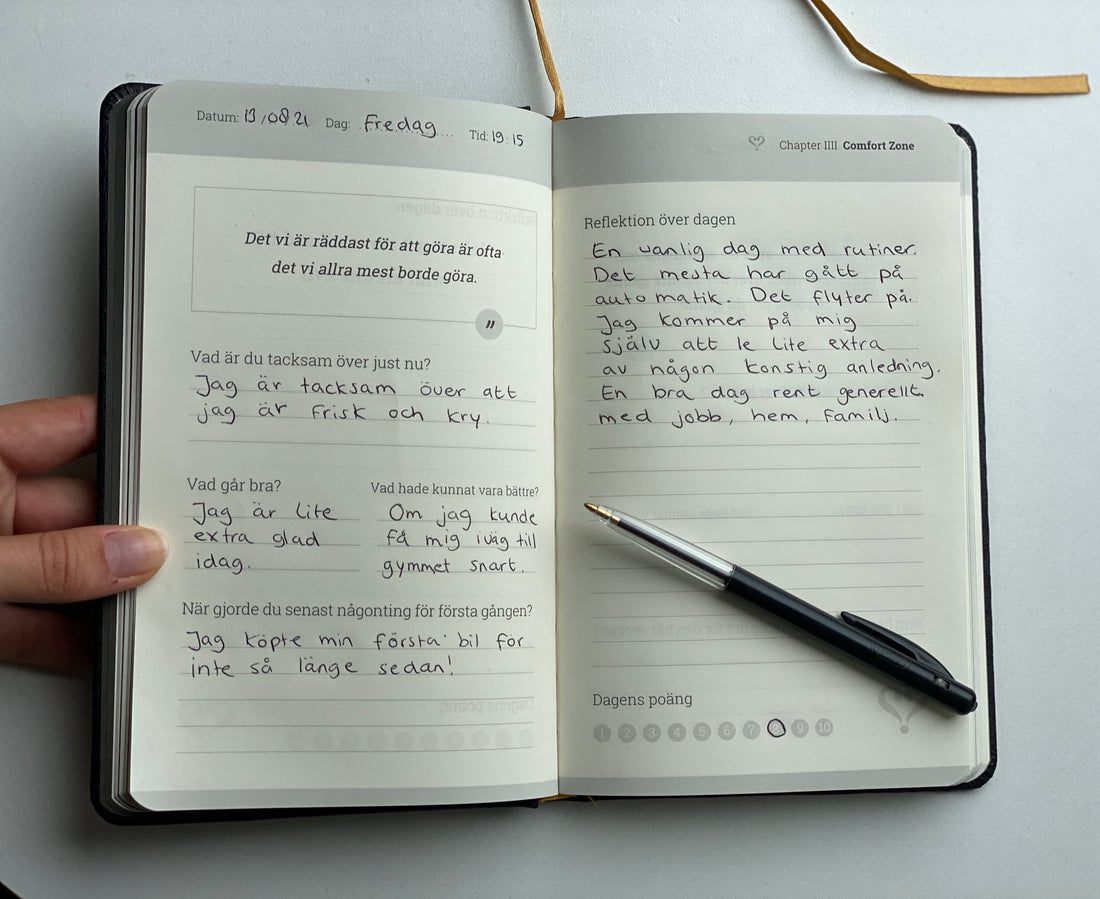 Datum: 13/08.21 Dag: Fredag Tid: 19:15
Det vi är räddast för att göra är ofta
det vi allra mest borde göra.
"
Vad är du tacksam över just nu?
Jag är tacksam över att
jag är frisk och kry.
Vad går bra?
Jag är lite
extra glad
idag.
Vad hade kunnat vara bättre?
Om jag kunde
få mig iväg till
gymmet snart.
När gjorde du senast någonting för första gången?
Jag köpte min första bil för
inte så länge sedan!
Chapter IIII Comfort Zone
Reflektion över dagen
En vanlig dag med rutiner.
Det mesta har gått på
automatik. Det flyter på.
Jag kommer på mig
själv att le lite extra
av någon konstig anledning.
En bra dag rent generellt
med jobb, hem, familj.
Dagens poäng
1 2 3 4 5 6 7 8 9 10